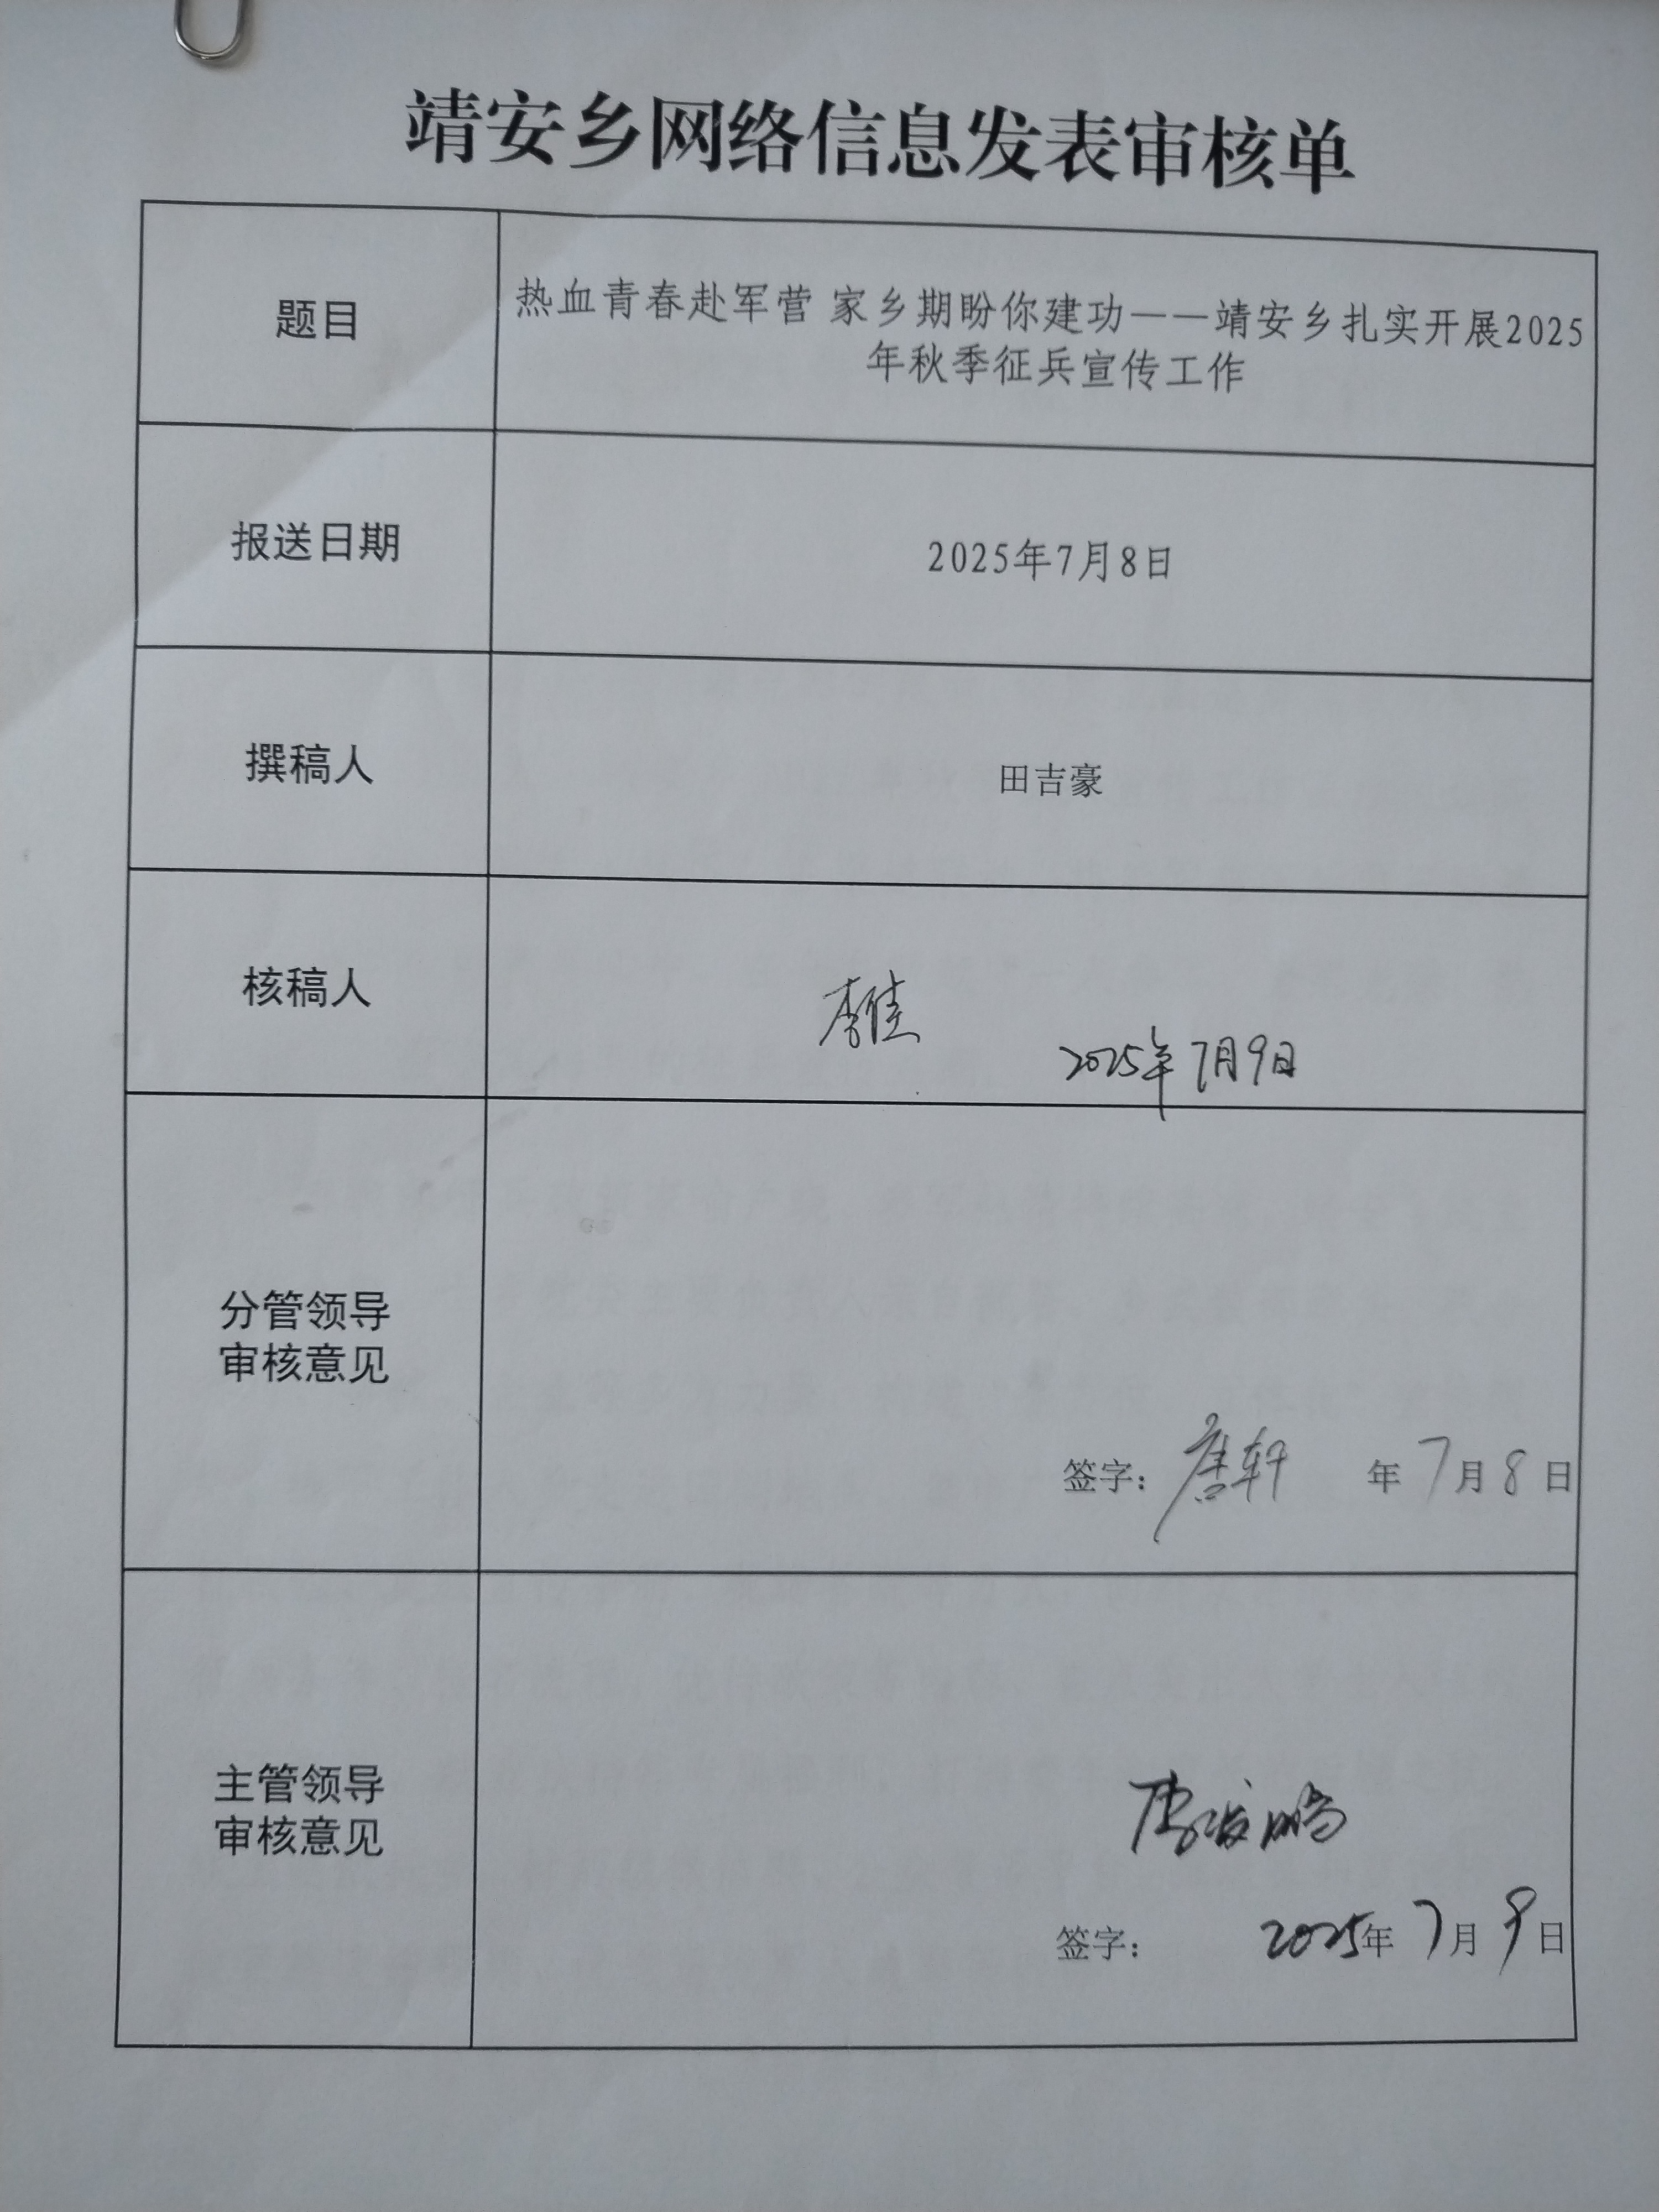 靖安乡网络信息发表审核单
题目
热血青春赴军营 家乡期盼你建功——靖安乡扎实开展2025
年秋季征兵宣传工作
报送日期
2025年7月8日
撰稿人
田吉豪
核稿人
李佳
2025年7月9日
分管领导
审核意见
签字：唐轩 年7月8日
主管领导
审核意见
签字： 2025年7月9日